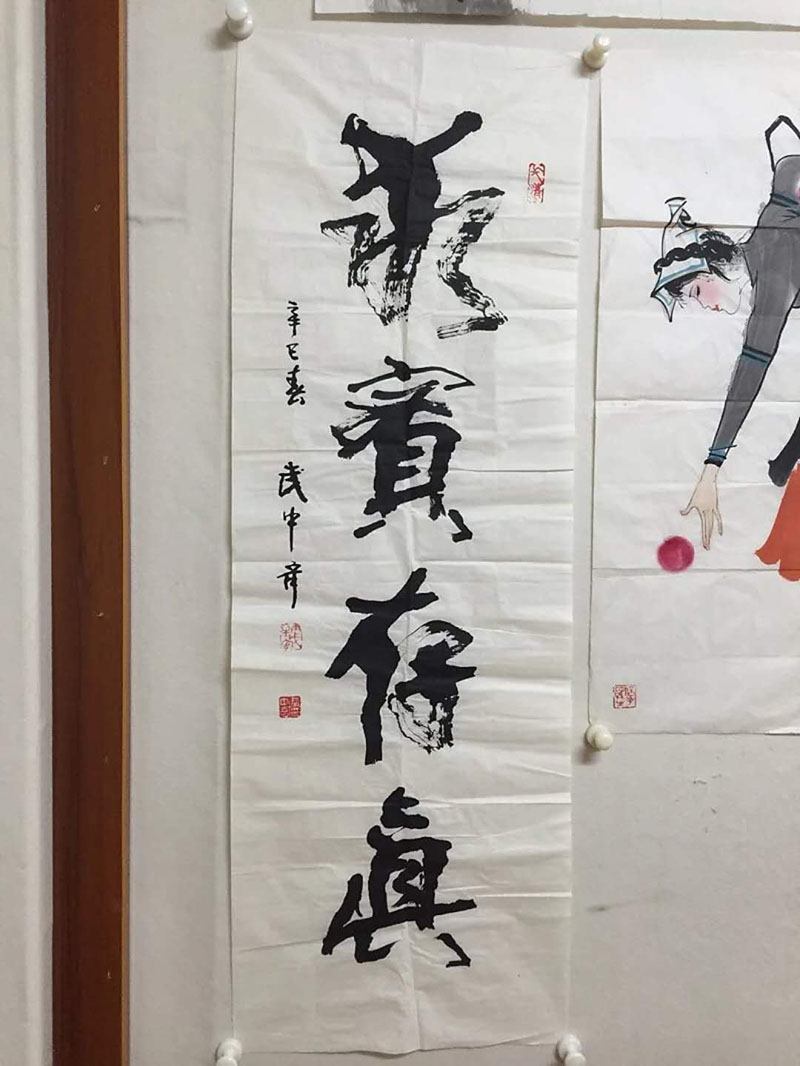 求實存真
辛巳春 武中奇